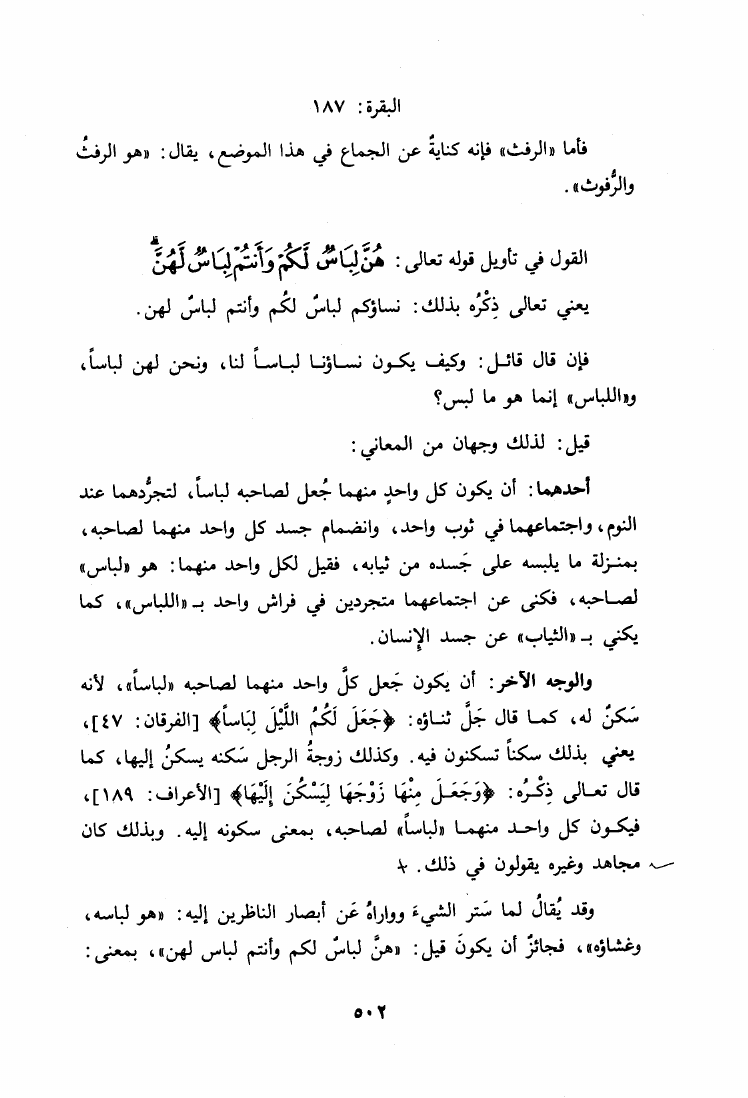 البقرة: ١٨٧
فأما «الرفث» فإنه كنايةٌ عن الجماع في هذا الموضع، يقال: «هو الرفثُ
والرُّفوث».
القول في تأويل قوله تعالى: هُنَّ لِبَاسٌ لَّكُمْ وَأَنتُمْ لِبَاسٌ لَّهُنَّ ۗ
يعني تعالى ذِكْرُه بذلك: نساؤكم لباسٌ لكُم وأنتم لباسٌ لهن.
فإن قال قائل: وكيف يكون نساؤنا لباساً لنا، ونحن لهن لباساً،
و«اللباس» إنما هو ما لبس؟
قيل: لذلك وجهان من المعاني:
أحدهما: أن يكون كل واحدٍ منهما جُعل لصاحبه لباساً، لتجرُّدهما عند
النوم، واجتماعهما في ثوب واحد، وانضمام جسد كل واحد منهما لصاحبه،
بمنزلة ما يلبسه على جَسده من ثيابه، فقيل لكل واحد منهما: هو «لباس»
لصاحبه، فكنى عن اجتماعهما متجردين في فراش واحد بـ «اللباس»، كما
يكني بـ «الثياب» عن جسد الإنسان.
والوجه الآخر: أن يكون جَعل كلَّ واحد منهما لصاحبه «لباساً»، لأنه
سَكنٌ له، كما قال جَلَّ ثناؤه: ﴿جَعَلَ لَكُمُ اللَّيْلَ لِبَاساً﴾ [الفرقان: ٤٧]،
يعني بذلك سكناً تسكنون فيه. وكذلك زوجةُ الرجل سَكنه يسكنُ إليها، كما
قال تعالى ذِكْرُه: ﴿وَجَعَلَ مِنْهَا زَوْجَهَا لِيَسْكُنَ إِلَيْهَا﴾ [الأعراف: ١٨٩]،
فيكون كل واحد منهما «لباساً» لصاحبه، بمعنى سكونه إليه. وبذلك كان
مجاهد وغيره يقولون في ذلك.
وقد يُقالُ لما سَتر الشيءَ وواراهُ عَن أبصار الناظرين إليه: «هو لباسه،
وغشاؤه»، فجائزٌ أن يكونَ قيل: «هنَّ لباسٌ لكم وأنتم لباس لهن»، بمعنى:
٥٠٢